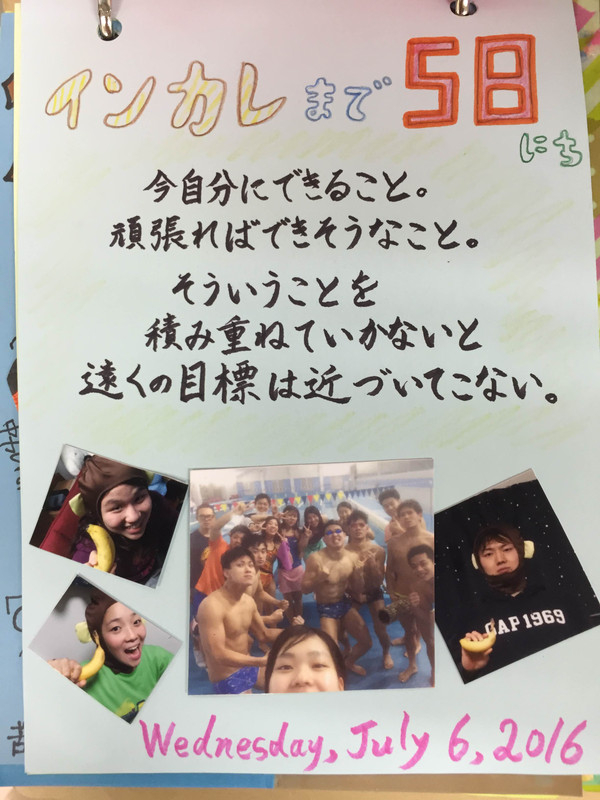 インカレまで58
にち
今自分にできること。
頑張ればできそうなこと。
そういうことを
積み重ねていかないと
遠くの目標は近づいてこない。
GAP 1969
Wednesday, July 6, 2016